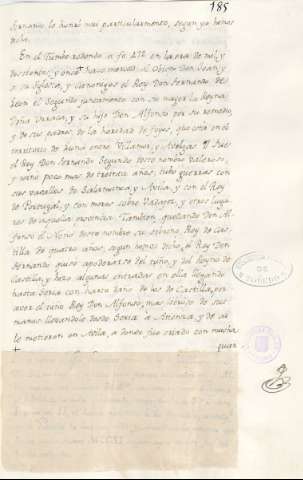 185
fernando lo honró mui particularmente, segun ya hemos
dicho.
En el Tumbo redondo a fo. 472 en la era de mil y
doscientos, y once hace merced al Obispo Don Juan, y
a su Iglesia, y Canonigos el Rey Don fernando de
Leon el Segundo juntamente con su muger la Reyna
Doña Urraca, y su hijo Don Alfonso por su remedio,
y de sus padres, de la heredad de foyos, que está en el
territorio de entre Villamor, y Abelgas. Fue
el Rey Don fernando Segundo deste nombre Valeroso,
y reynó poco mas de treinta años, tubo guerras con
sus vasallos de Salamanca, y Avila, y con el Rey
de Portugal, y con moros sobre Badajoz, y otros lugares
de aquella provincia. Tambien, quedando Don Al-
fonso el Nono deste nombre su sobrino, Rey de Cas-
tilla de quatro años, segun hemos dicho, el Rey Don
fernando quiso apoderarse del niño, y del Reyno de
Castilla, y hizo algunas entradas en ella llegando
hasta Soria con harto daño de los de Castilla, por
aver el niño Rey Don Alfonso, mas libròse de sus
manos llevandole desde Soria a Atienza, y de allí
le metieron en Avila, a donde fue criado con mucha
guar